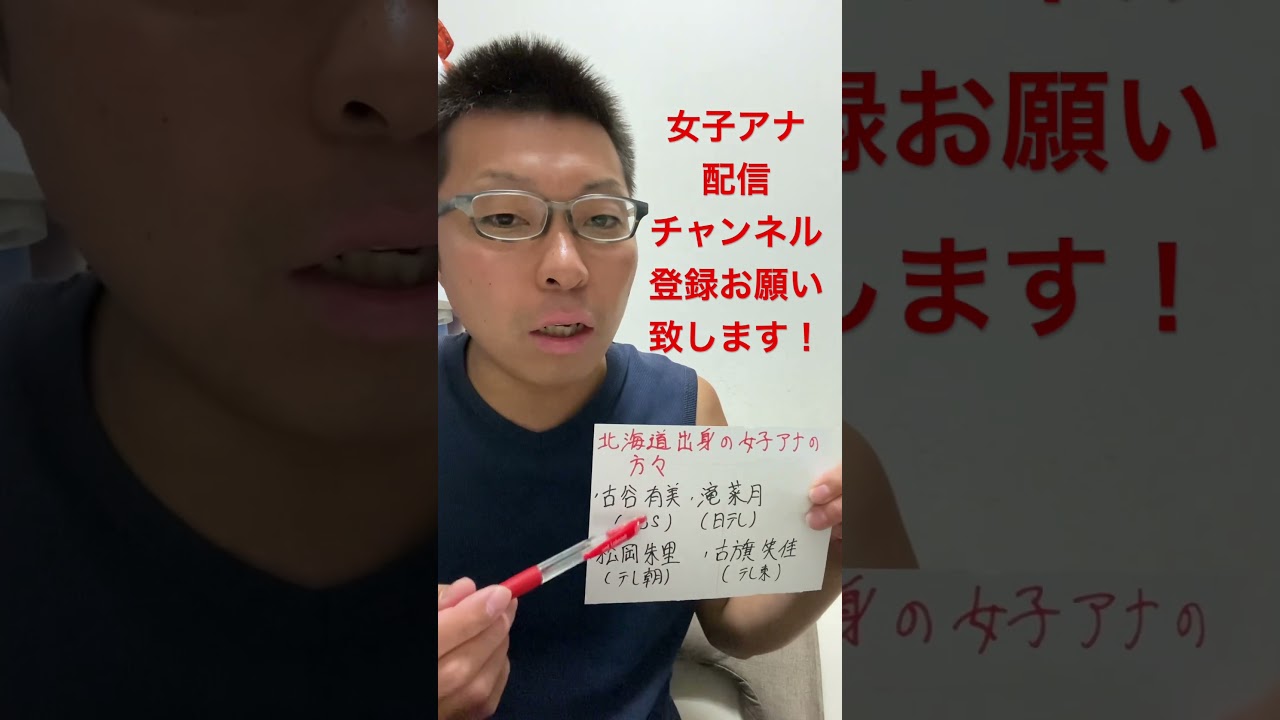 女子アナ
配信
チャンネル
登録お願い
致します！
北海道出身の女子アナの
方々
・古谷有美 ・滝菜月
(日テレ)
松岡朱里 ・古旗笑佳
(テレ朝) (テレ東)
録お願い
します！
身の女子アナの